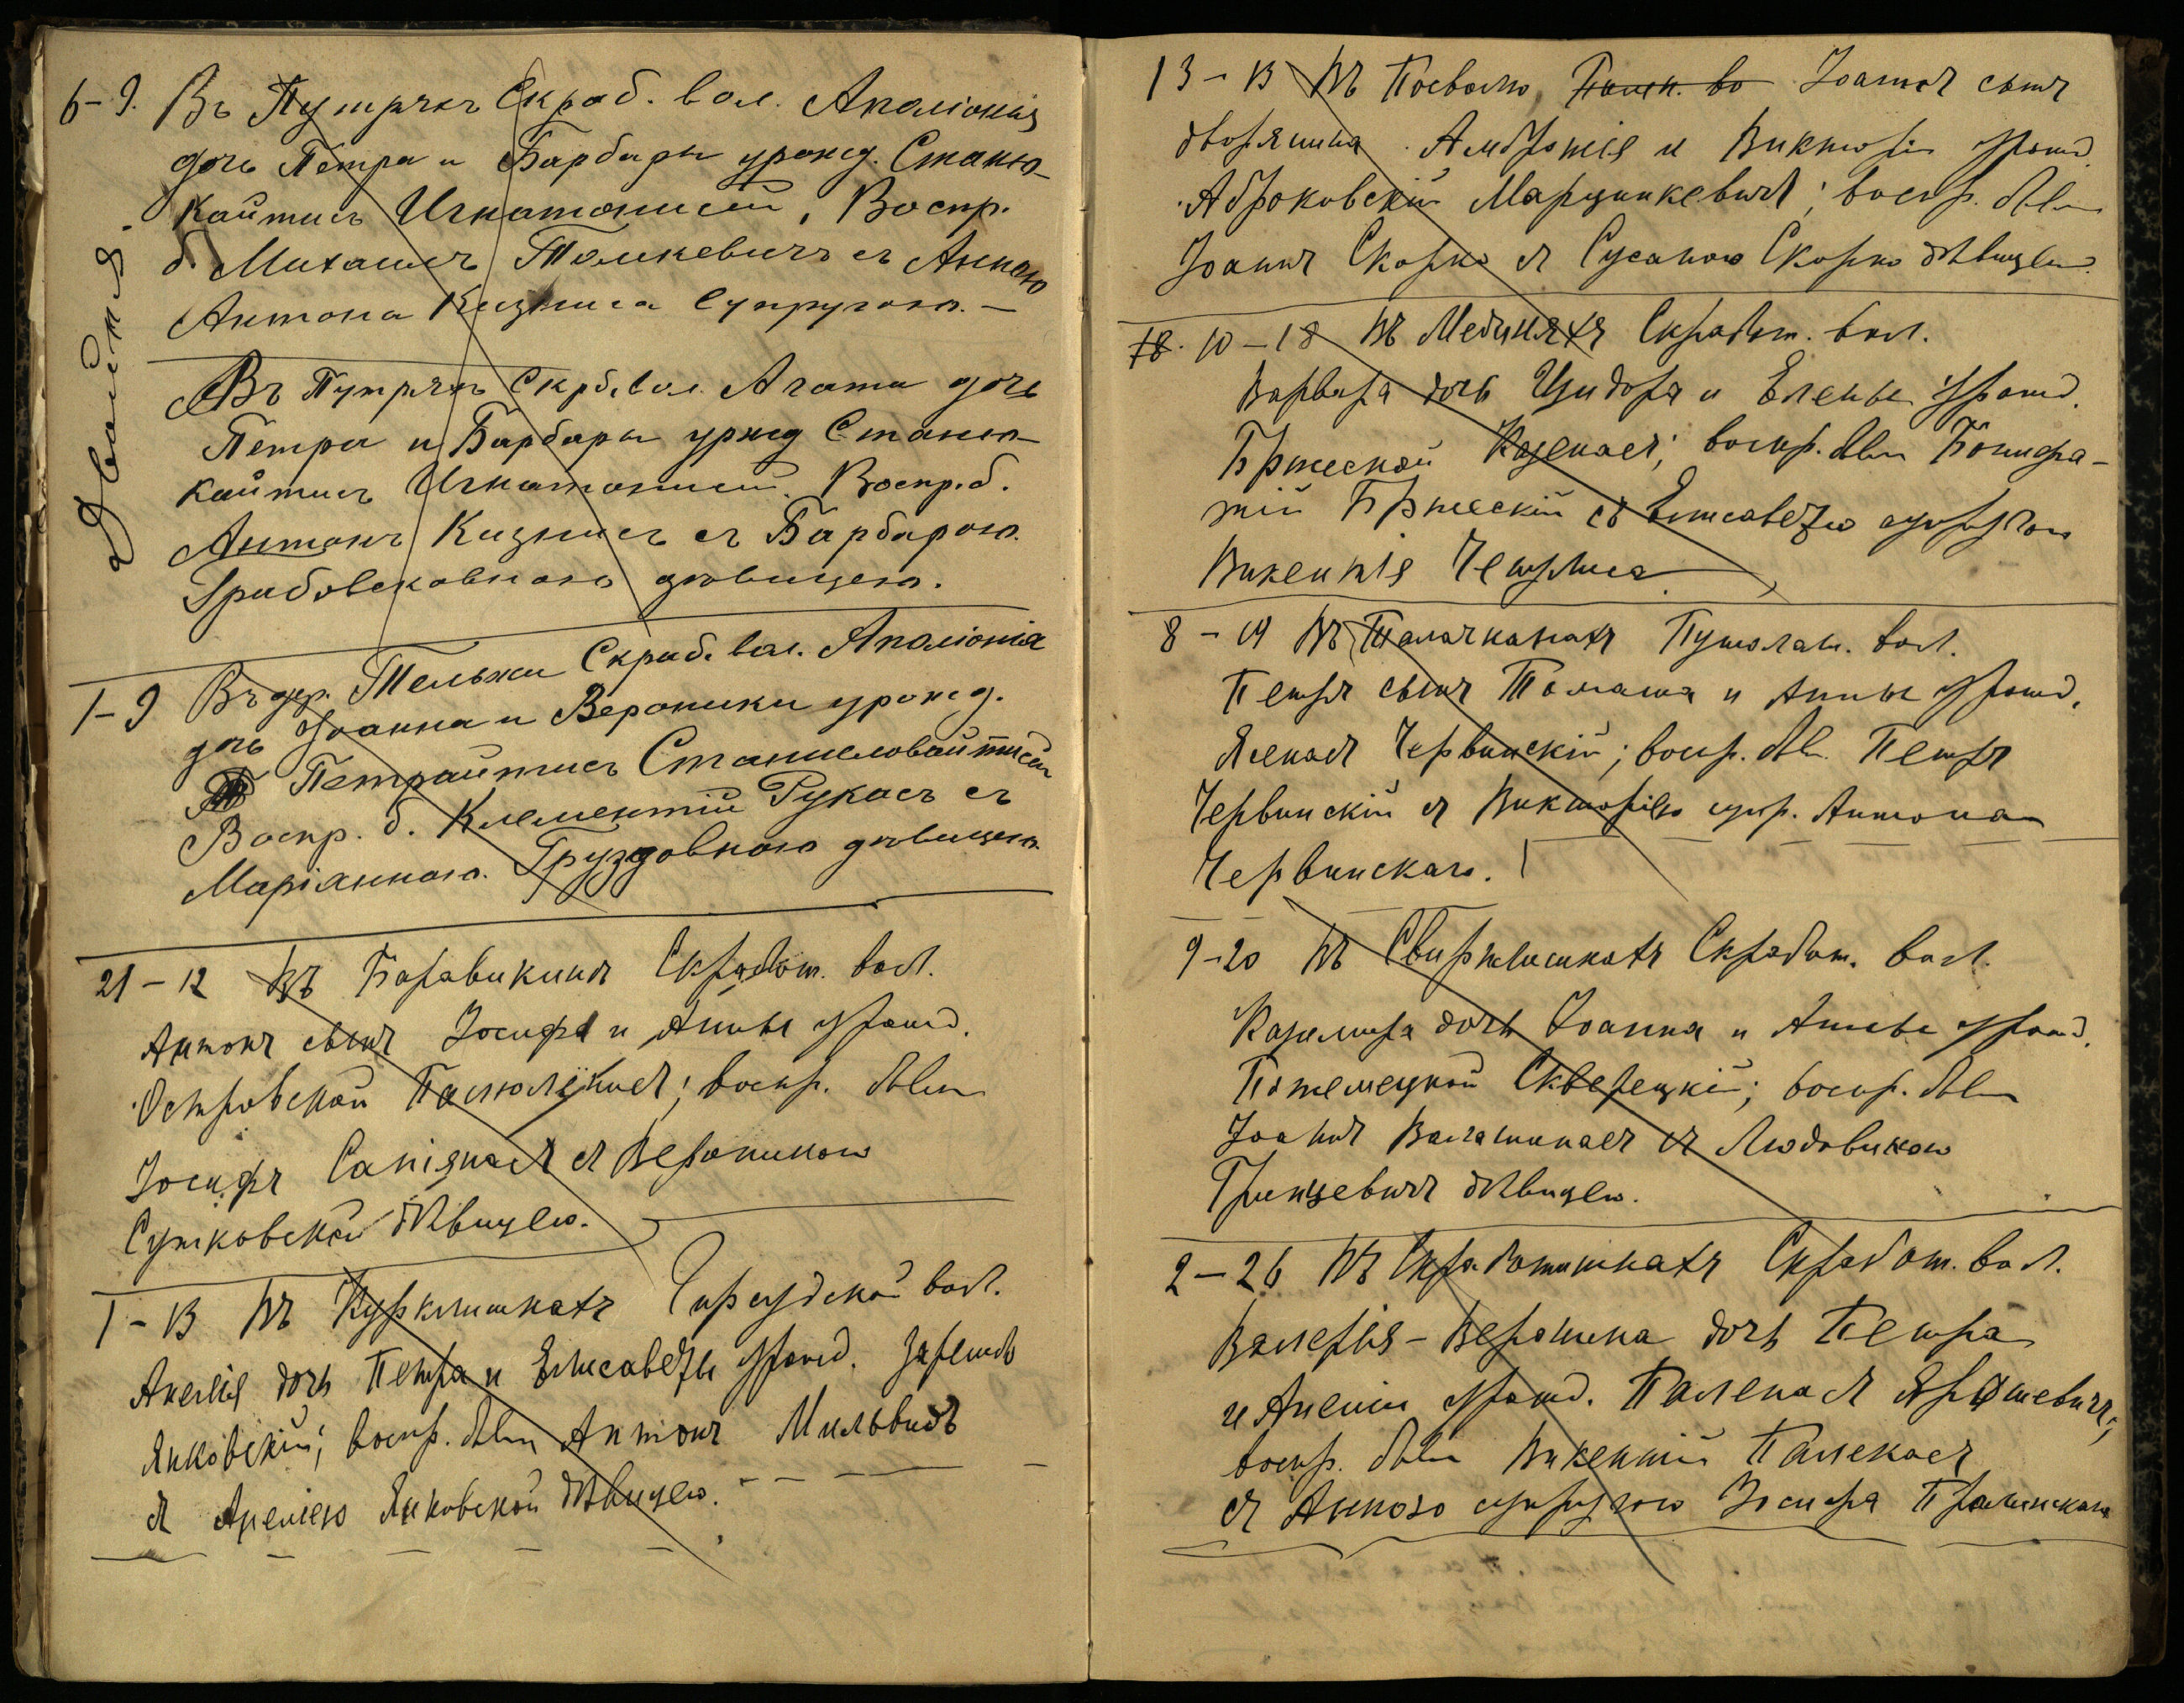 6-9. Въ Путрячъ Скраб. вол. Аполіонія
дочь Петра и Барбары урожд. Станю-
кайтисъ Игнатонисъ, Воспр.
б. Михаилъ Томкевичъ съ Анною
Антона Кизниса Супругою. —
Двойня.
Въ Путрячъ Скрб. вол. Агата дочь
Петра и Барбары уржд Станю-
кайтисъ Игнатонисъ. Воспр. б.
Антонъ Кизнисъ съ Барбарою
Грибовсковною дѣвицею.
1-9 Въ дер. Тельжи Скраб. вол. Аполіонія
дочь Іоанна и Вероники урожд.
Петрайтисъ Станиловайтисъ
Воспр. б. Клементій Рукасъ съ
Маріанною Груздовною дѣвицею.
21-12 Въ Баравикинѣ Скработ. вол.
Антонъ сынъ Іосифа и Анны урожд.
Островской Палюлкисъ; воспр. были
Іосифъ Сапіянасъ съ Вероникою
Сутковской дѣвицею.
1-13 Въ Куркмишкахъ вол.
Анелія дочь Петра и Елисаветы урожд.
Янковскій; воспр. были Антонъ Мильвидъ
съ Анеліею Янковской дѣвицею.
13-13 Въ Поеволю, Іоаннъ сынъ
дворянина Амброжія и Викторіи урожд.
Аброковской Марцинкевичъ; воспр. были
Іоаннъ Скорко съ Сусаною Скорко дѣвицею.
18. 10-18 Въ Мединяхъ Скработ. вол.
Варвара дочь Изидора и Елены урожд.
Бржеской Казенасъ; воспр. были Бонифа-
тій Бржескій съ Елисаветою супругою
Викентія
8-19 Въ Талачканахъ Пушолат. вол.
Петръ сынъ Томаша и Анны урожд.
Ясенасъ Червинскій; воспр. были Петръ
Червинскій съ Викторіею супр. Антона
Червинскаго.
9-20 Въ Свиржлишкахъ Скработ. вол.
Казимира дочь Іоанна и Анны урожд.
Скверецкій; воспр. были
Іоаннъ съ Людовикою
Гринцевичъ дѣвицею.
2-26 Въ Скработишкахъ Скработ. вол.
Валерія-Веронина дочь Петра
и Анеліи урожд. Паленасъ Ярошевичъ;
воспр. были Викентій Паленасъ
съ Анною супругою Іосифа